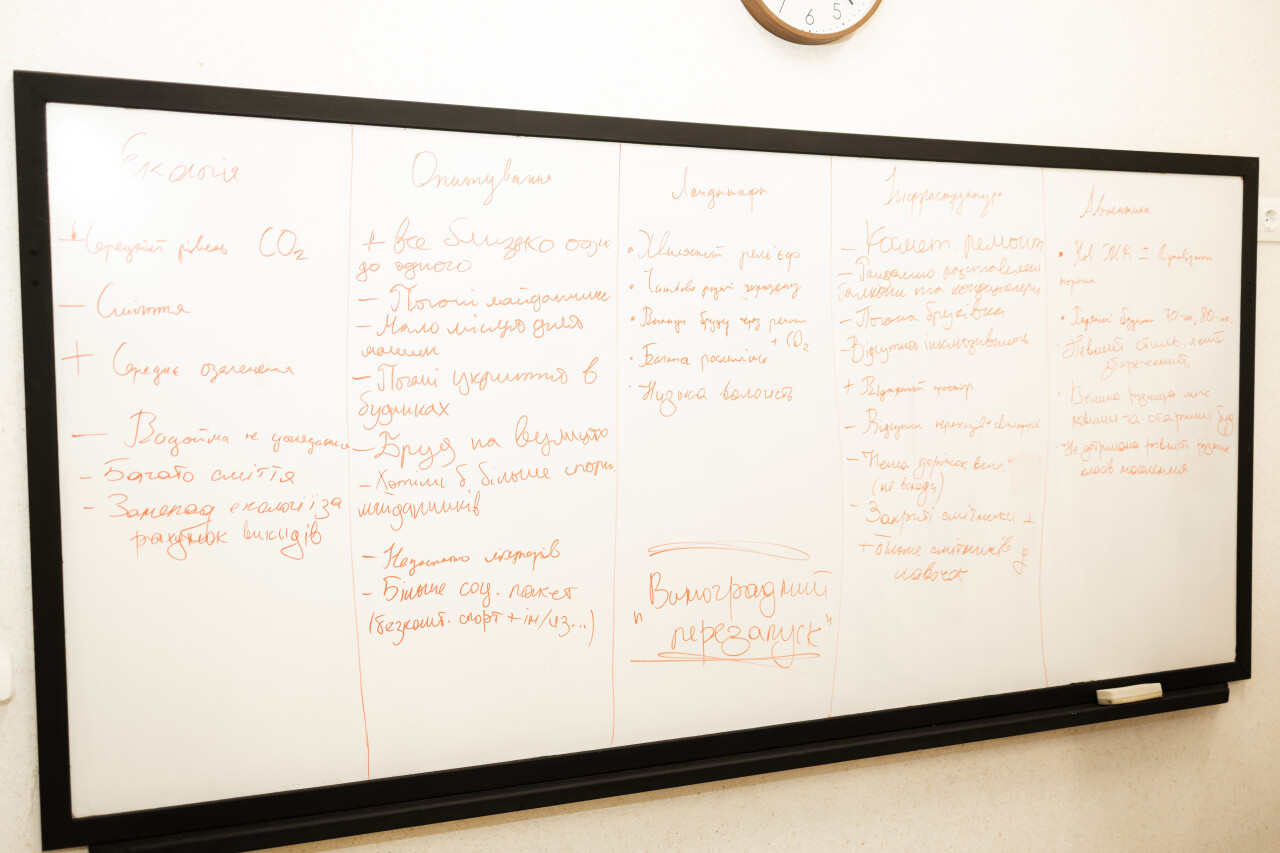 6 5
Екологія
+ Середній рівень CO₂
— Сміття
+ Середнє озеленення
— Водойма не
- Багато сміття
- Занепад екології за
рахунок викидів
Опитування
+ Все близько одно
до одного
- Погані майданчики
- Мало місця для
машин
- Погані укриття в
будинках
- Бруд на вулицях
- Хотіли б більше спорт.
майданчиків
- Недостатньо ліхтарів
- Більше соц. пакет
(безкошт. спорт + ін/яз...)
Ландшафт
• Хвилястий рельєф
• Частково родючі
• Викиди бруду через
+ CO₂
• Багата рослинність
· Низька вологість
"Виноградний
перезапуск"
Інфраструктура
- Космет. ремонт
- Рандомно розставлені
балкони та кондиціонери
- Погана бруківка
- Відсутня інклюзивність
+ Відкритий простір
- Відсутні переходи + світлофори
- Нема доріжок вел.
(не всюди)
- Закриті смітники +
+ більше смітників
лавочок
• Нові ЖК
норми
• будинки 70-х, 80-х
· стиль,
збережений
· Велика різниця між
новими та старими буд
· Не дотримана рівність різних
класів населення